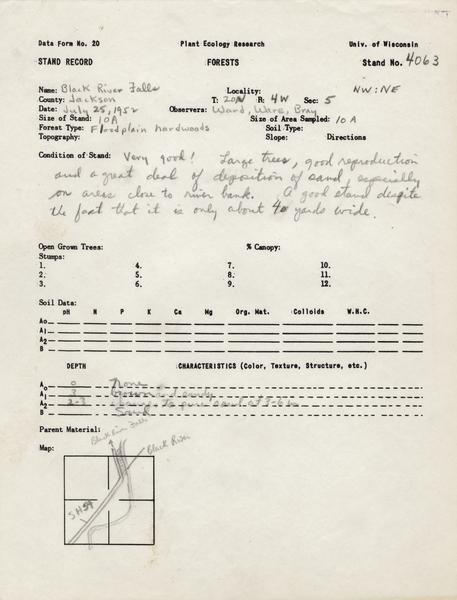 Data Form No. 20 Plant Ecology Research Univ. of Wisconsin
STAND RECORD FORESTS Stand No. 4063
Name: Black River Falls Locality: NW:NE
County: Jackson T: 20N R: 4W Sec: 5
Date: July 25, 1952 Observers: Ward, Ware, Bray
Size of Stand: 10A Size of Area Sampled: 10 A
Forest Type: Floodplain hardwoods Soil Type:
Topography: Slope: Directions
Condition of Stand: Very good! Large trees, good reproduction
and a great deal of deposition of sand, especially
on areas close to river bank. A good stand despite
the fact that it is only about 40 yards wide.
Open Grown Trees: % Canopy:
Stumps:
1. 4. 7. 10.
2. 5. 8. 11.
3. 6. 9. 12.
Soil Data:
pH N P K Ca Mg Org. Mat. Colloids W.H.C.
Ao
A1
A2
B
DEPTH CHARACTERISTICS (Color, Texture, Structure, etc.)
Ao 0 none
A1 3 sandy
A2 2-3 to pure sand at
B Sand
Parent Material:
Map:
Black River Falls
Black River
SH 54